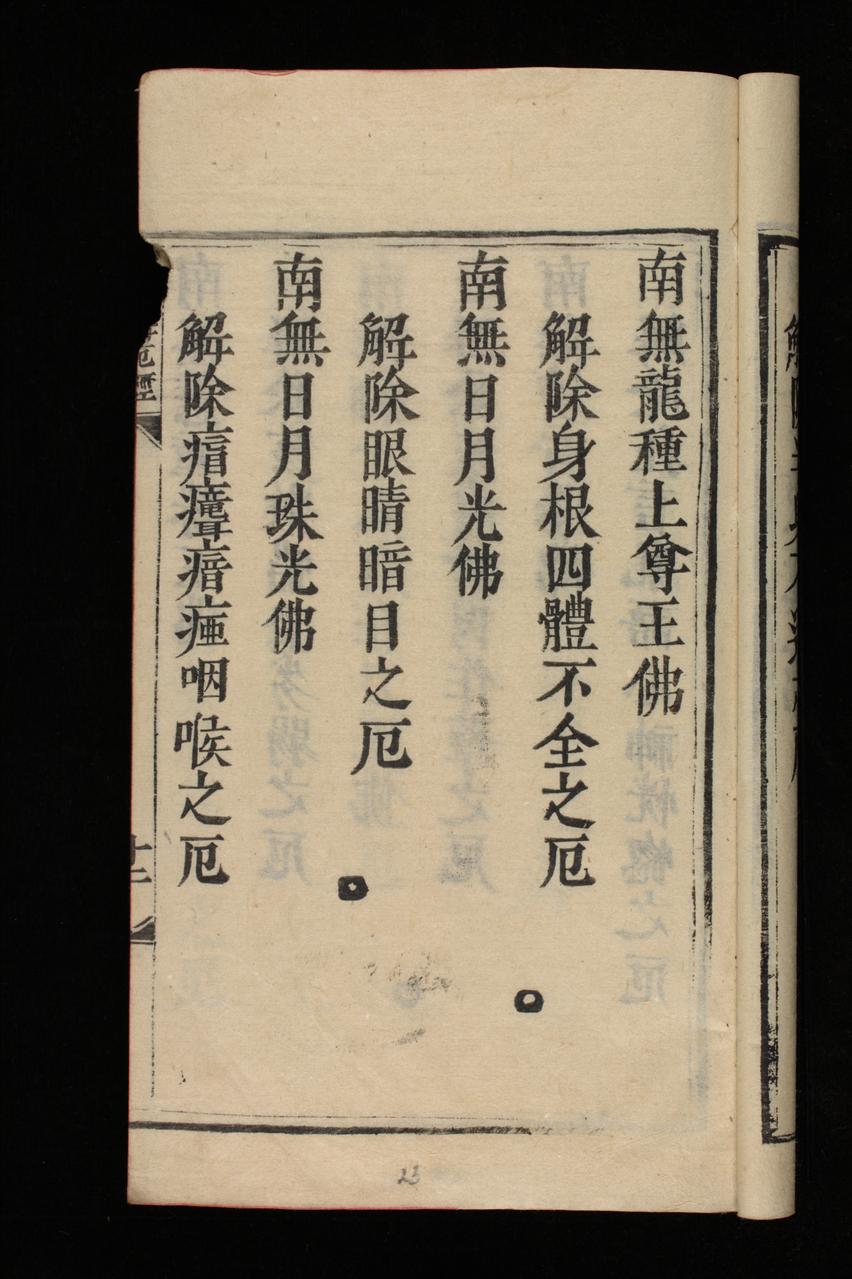 南無龍種上尊王佛
解除身根四體不全之厄
南無日月光佛
解除眼睛暗目之厄
南無日月珠光佛
解除瘖瘂咽喉之厄
厄經
十二
23